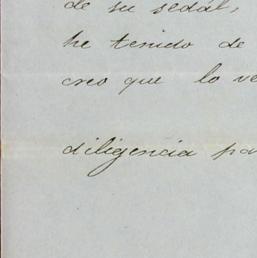 de su sedal,
he tenido de
creo que lo ve
diligencia pa